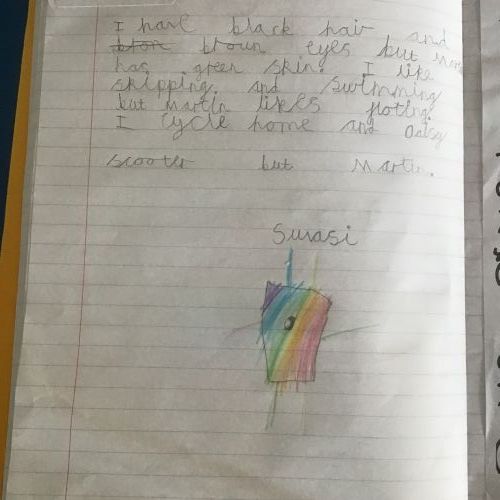 I have black hair and
brown eyes but
has green skin. I like
skipping. and swimming
but Martin likes
I cycle home and Daisy
scooter but Martin.
Sunasi